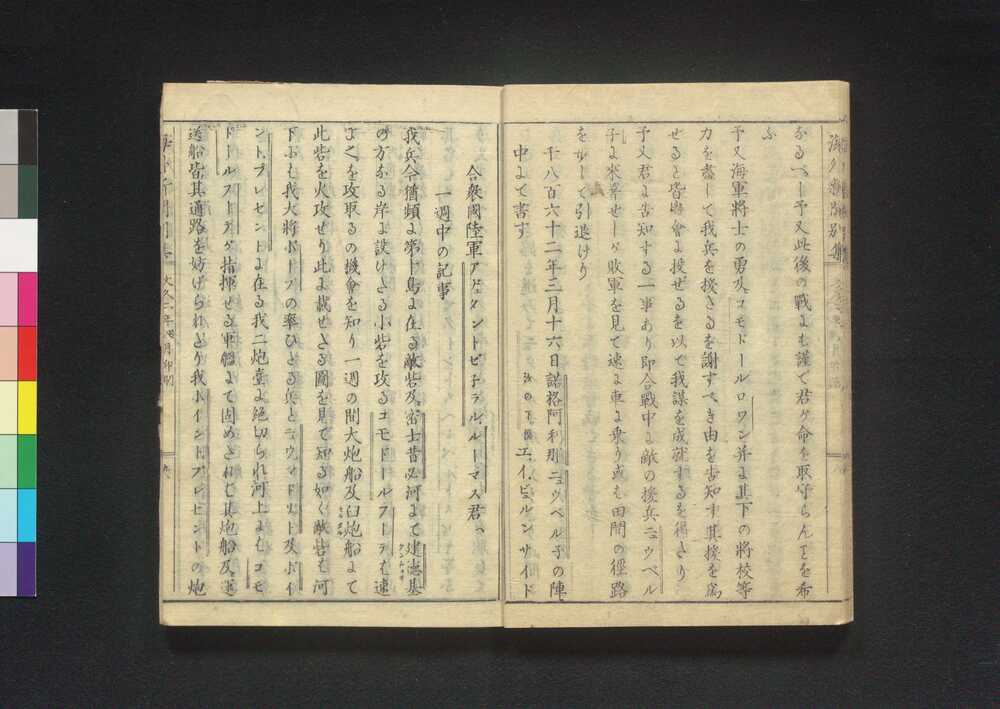 なるべし予又此後の戰にも謹で君ヶ命を取守らんことを希
ふ
予又海軍將士の勇及コモドールロワン并に其下の將校等
力を盡して我兵を援さるを謝すべき由を告知す其援を爲
せると皆機會に投せるを以て我謀を成就するを得たり
予又君に告知する一事あり即合戰中に敵の援兵ニウベル
子に來著せしヶ敗軍を見て速に車に乘り或も田間の徑路
をせして引退けり
千八百六十二年三月十六日諾格阿利那ニウベル子の陣
中にて書す
エ、イ、ビュルンサイド
合衆國陸軍アヂタントゼ子ラルトーマス君へ
一週中の記事
我兵今猶頻に第十島に在る敵砦及密士昔必河にて建德基
の方なる岸に設けたる小砦を攻るコモドールフートも速
によくを攻取るの機會を知り一週の間大炮船及臼炮船にて
此砦を火攻せり此に載せたる圖を見て知る如く敵砦も河
下にも我大將ポープの率ひたる兵とニウマドリット及ポイ
ントプレセントに在る我二炮臺に絶切られ河上にもコモ
ドールフートヶ指揮せる軍艦にて固めたれも其炮船及運
送船皆其通路を妨げられたり我ポイントプレセントの炮